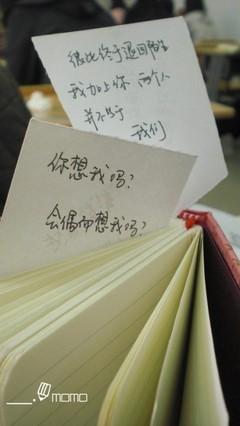 彼此终于退回陌生
我加上你 两个人
并不等于
我们
你想我吗?
会偶而想我吗?
momo